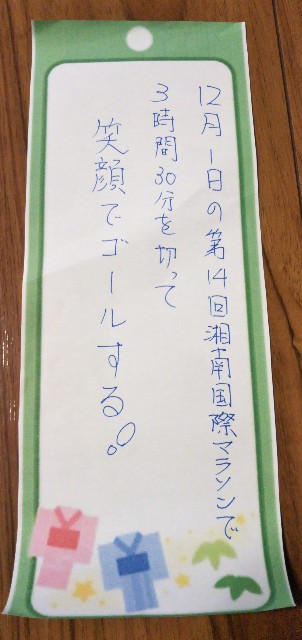 12月1日の第14回湘南国際マラソンで
3時間30分を切って
笑顔でゴールする!